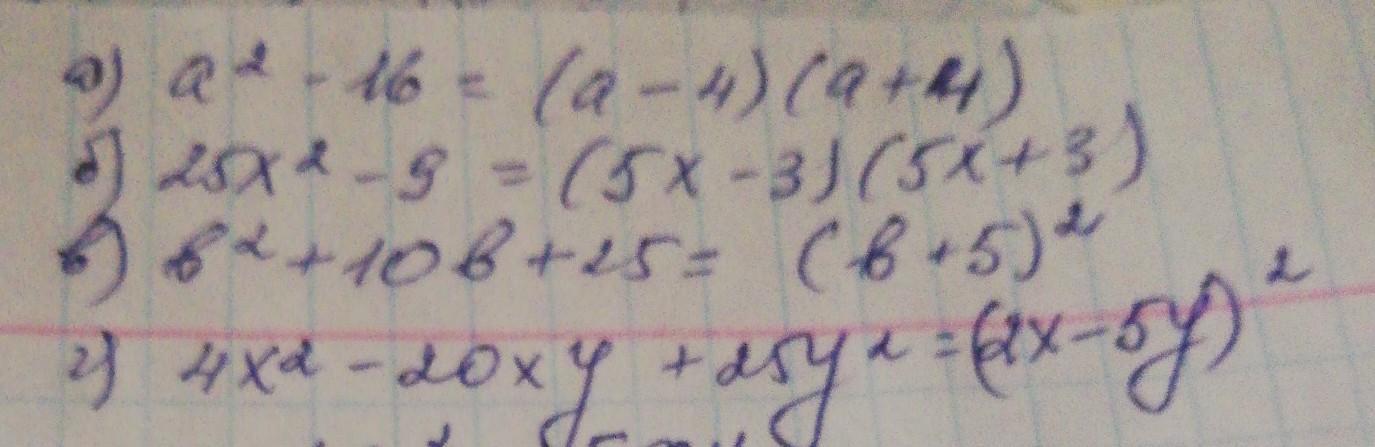 а) a² - 16 = (a - 4)(a + 4)
б) 25x² - 9 = (5x - 3)(5x + 3)
в) b² + 10b + 25 = (b + 5)²
г) 4x² - 20xy + 25y² = (2x - 5y)²